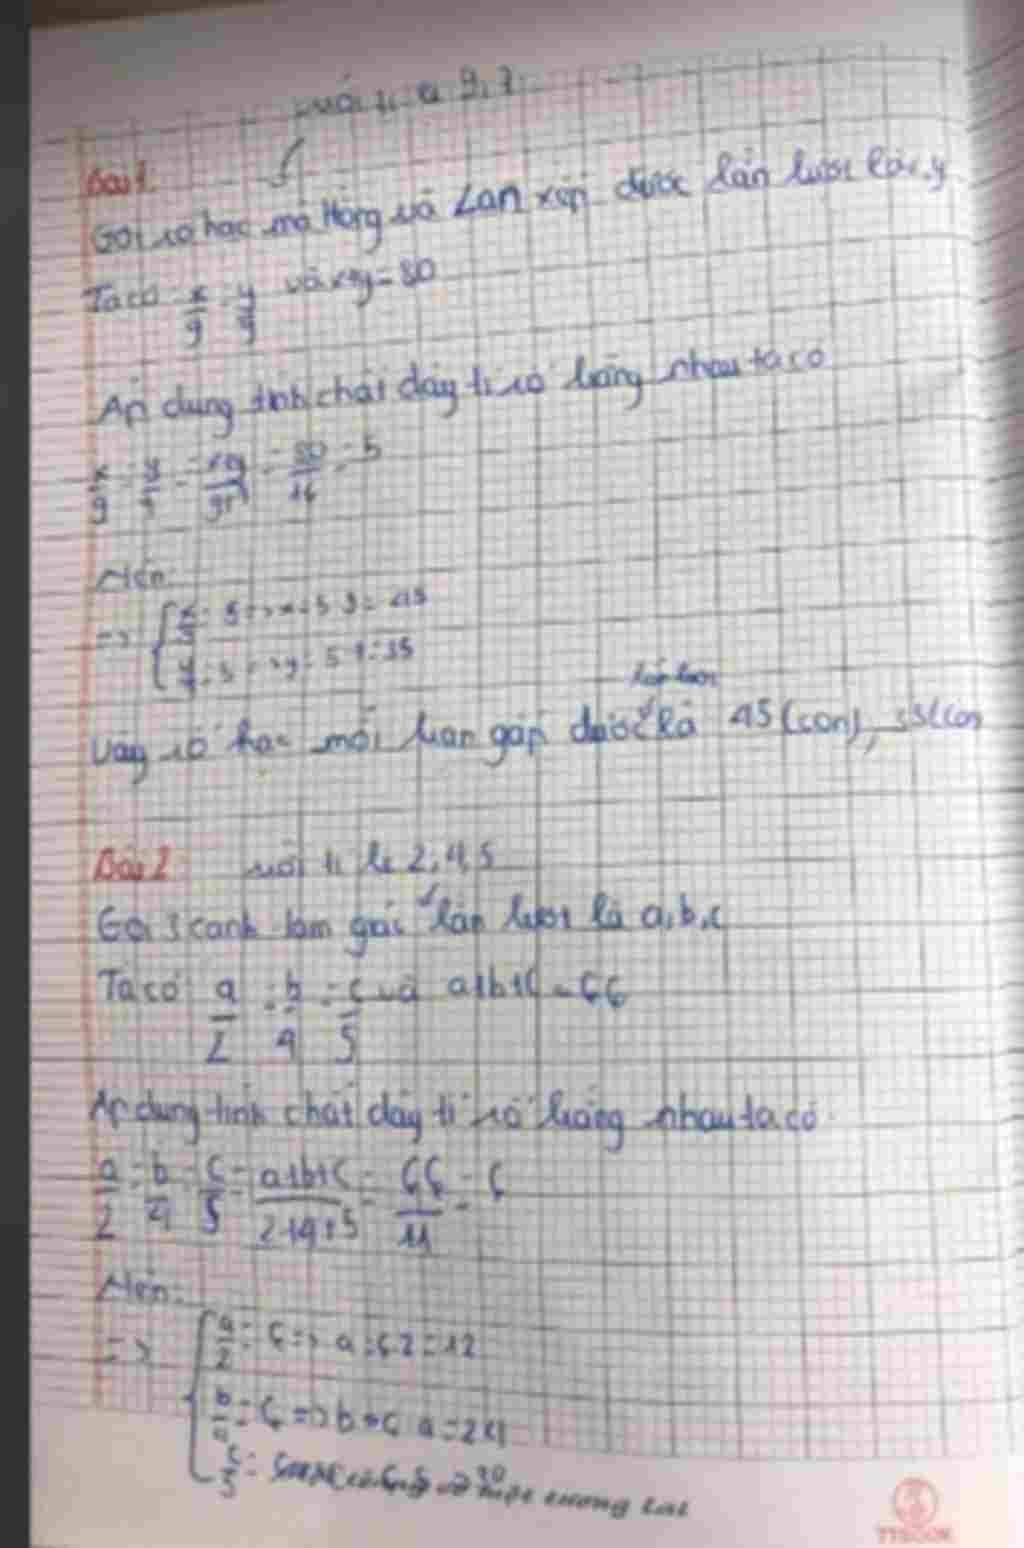 với tỉ lệ 9, 7
Bài 1:
Gọi số hạc mà Hồng và Lan xếp được lần lượt là x, y
Ta có x/9 = y/7 và x+y = 80
Áp dụng tính chất dãy tỉ số bằng nhau ta có
x/9 = y/7 = x+y/9+7 = 80/16 = 5
Nên:
=> { x/9 = 5 => x = 5.9 = 45
y/7 = 5 => y = 5.7 = 35
lần lượt
Vậy số hạc mỗi bạn gấp được là 45 (con), 35 (con
Bài 2 với tỉ lệ 2, 4, 5
Gọi 3 cạnh tam giác lần lượt là a, b, c
Ta có: a/2 = b/4 = c/5 và a+b+c = 66
Áp dụng tính chất dãy tỉ số bằng nhau ta có
a/2 = b/4 = c/5 = a+b+c/2+4+5 = 66/11 = 6
Nên:
=> { a/2 = 6 => a = 6.2 = 12
b/4 = 6 => b = 6.4 = 24
c/5 =
một tương lai
TTBOOK